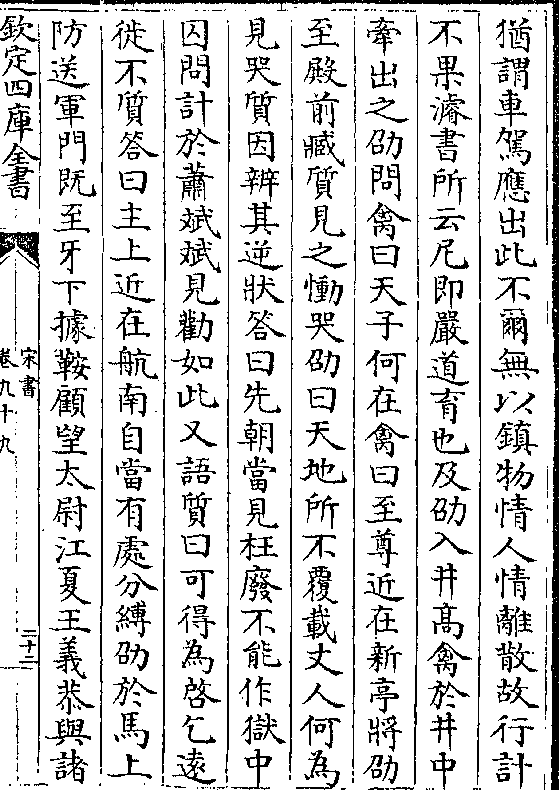 猶謂車駕應出此不爾無以鎮物情人情離散故行計
不果濬書所云尼即嚴道育也及劭入井髙禽於井中
牽出之劭問禽曰天子何在禽曰至尊近在新亭將劭
至殿前臧質見之慟哭劭曰天地所不覆載丈人何為
見哭質因辨其逆狀答曰先朝當見枉廢不能作獄中
囚問計於蕭斌斌見勸如此又語質曰可得為啓乞遠
徙不質答曰主上近在航南自當有處分縛劭於馬上
防送軍門既至牙下據鞍顧望太尉江夏王義恭與諸
欽定四庫全書
宋書
卷九十九
三十二